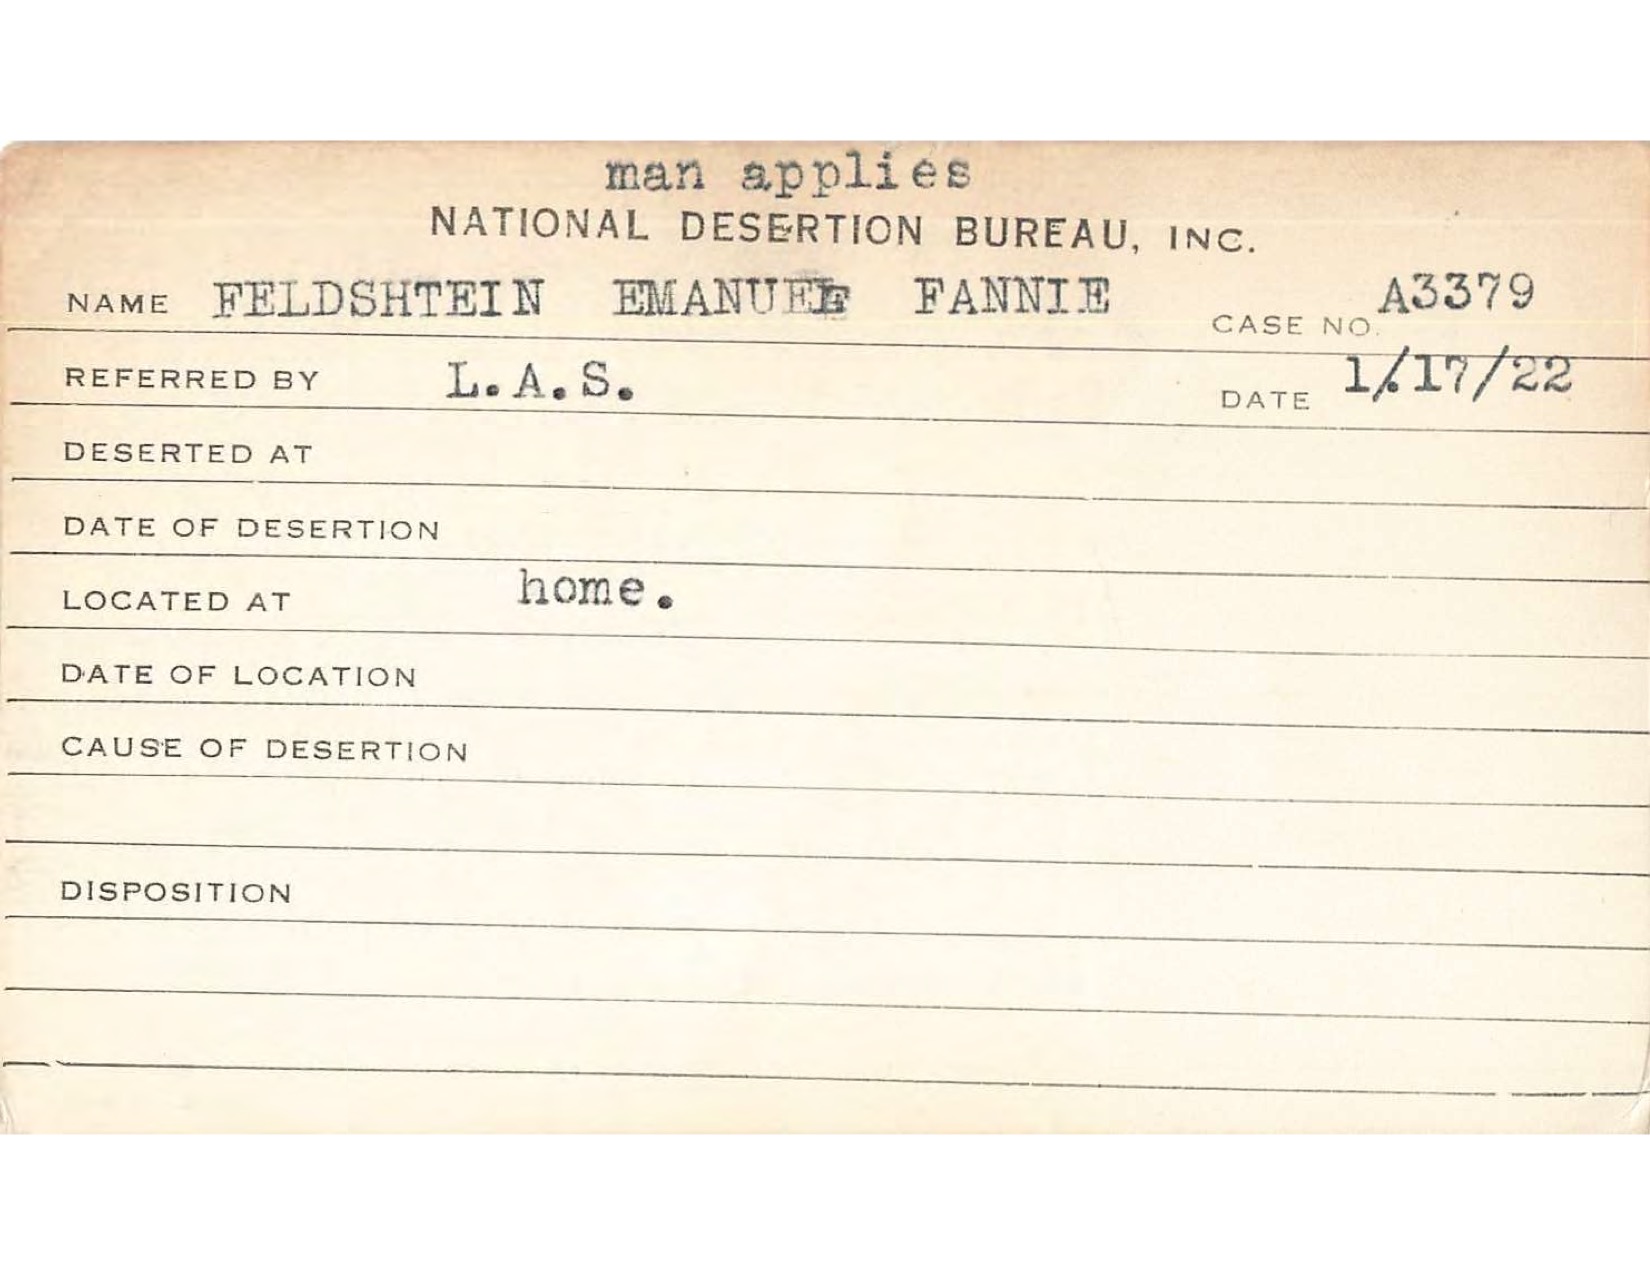 man applies
NATIONAL DESERTION BUREAU, INC.
NAME FELDSHTEIN EMANUEL FANNIE CASE NO. A3379
REFERRED BY L.A.S. DATE 1/17/22
DESERTED AT
DATE OF DESERTION
LOCATED AT home.
DATE OF LOCATION
CAUSE OF DESERTION
DISPOSITION